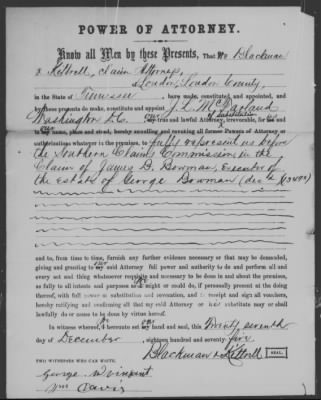 POWER OF ATTORNEY.
Know all Men by these Presents, That We Blackman
& Kittrell, Claim Attorneys,
Loudon, Loudon County,
in the State of Tennessee have made, constituted and appointed, and
by these presents do make, constitute and appoint J. L. McFarland
Washington D.C. our true and lawful Attorney, irrevocable, for us and
in our name, place and stead, hereby annulling and revoking all former Powers of Attorney or
authorizations whatever in the premises, to fully represent us before
the Southern Claims Commission, in the
Claim of James D. Bowman, Executor of
the Estate of George Bowman (dec'd
and to, from time to time, furnish any further evidence necessary or that may be demanded,
giving and granting to our said Attorney full power and authority to do and perform all and
every act and thing whatsoever requisite and necessary to be done in and about the premises,
as fully to all intents and purposes as we might or could do, if personally present at the doing
thereof, with full power of substitution and revocation, and to receipt and sign all vouchers,
hereby ratifying and confirming all that my said Attorney or his substitute may or shall
lawfully do or cause to be done by virtue hereof.
In witness whereof, we hereunto set our hand and seal, this twenty seventh
day of December eighteen hundred and seventy five
Blackman & Kittrell SEAL.
TWO WITNESSES WHO CAN WRITE.
George W Vincent
Wm Davis